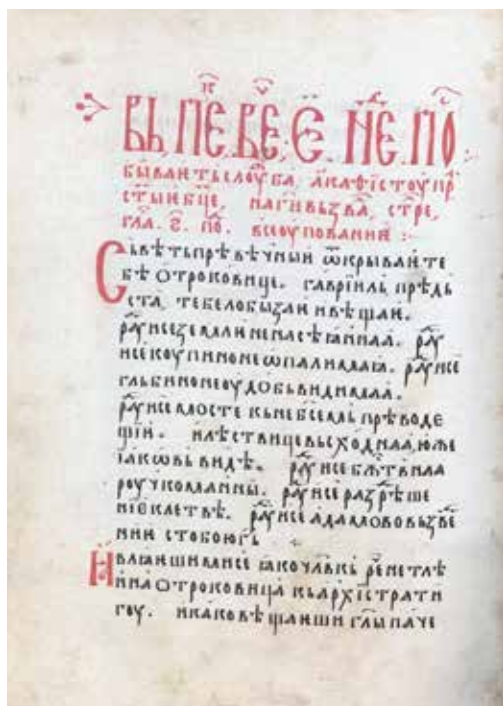 ВЬ ПЕ҃. ВЕ҃. Є҃. НЕ҃. ПО҃.
бываить слоуба, акаѳїстоу пр
ст҃ыи бц҃е, на ги вьзва, ст҃ре,
гла҃. в҃. по҃. все оупованїи :~
Сьвѣть прѣвѣчныи ѿкриваите
бѣ отроковице. гавриїль прѣдь
ста, тебе лобызаи и вѣщаи.
раⷣуисе земли ненасѣꙗннаа. раⷣу
исе коупино неѡпалимаа. раⷣуисе
гльбино неоудобьвидимаа.
раⷣуисе мосте кь нб҃семь прѣводе
щїи. и лѣствице высходнаа, юже
іаковь видѣ. раⷣуисе бж҃твнаа
роучко манны. раⷣуисе разрѣше
нїе клетвѣ. раⷣуисе адамово вьзве
нии с тобою гь
Ꙗвлꙗиши ми се ꙗко чл҃вкь реⷱ нетлѣ
ннаа отроковица кь архїстрати
гоу. и како вѣщаиши гл҃ы паче